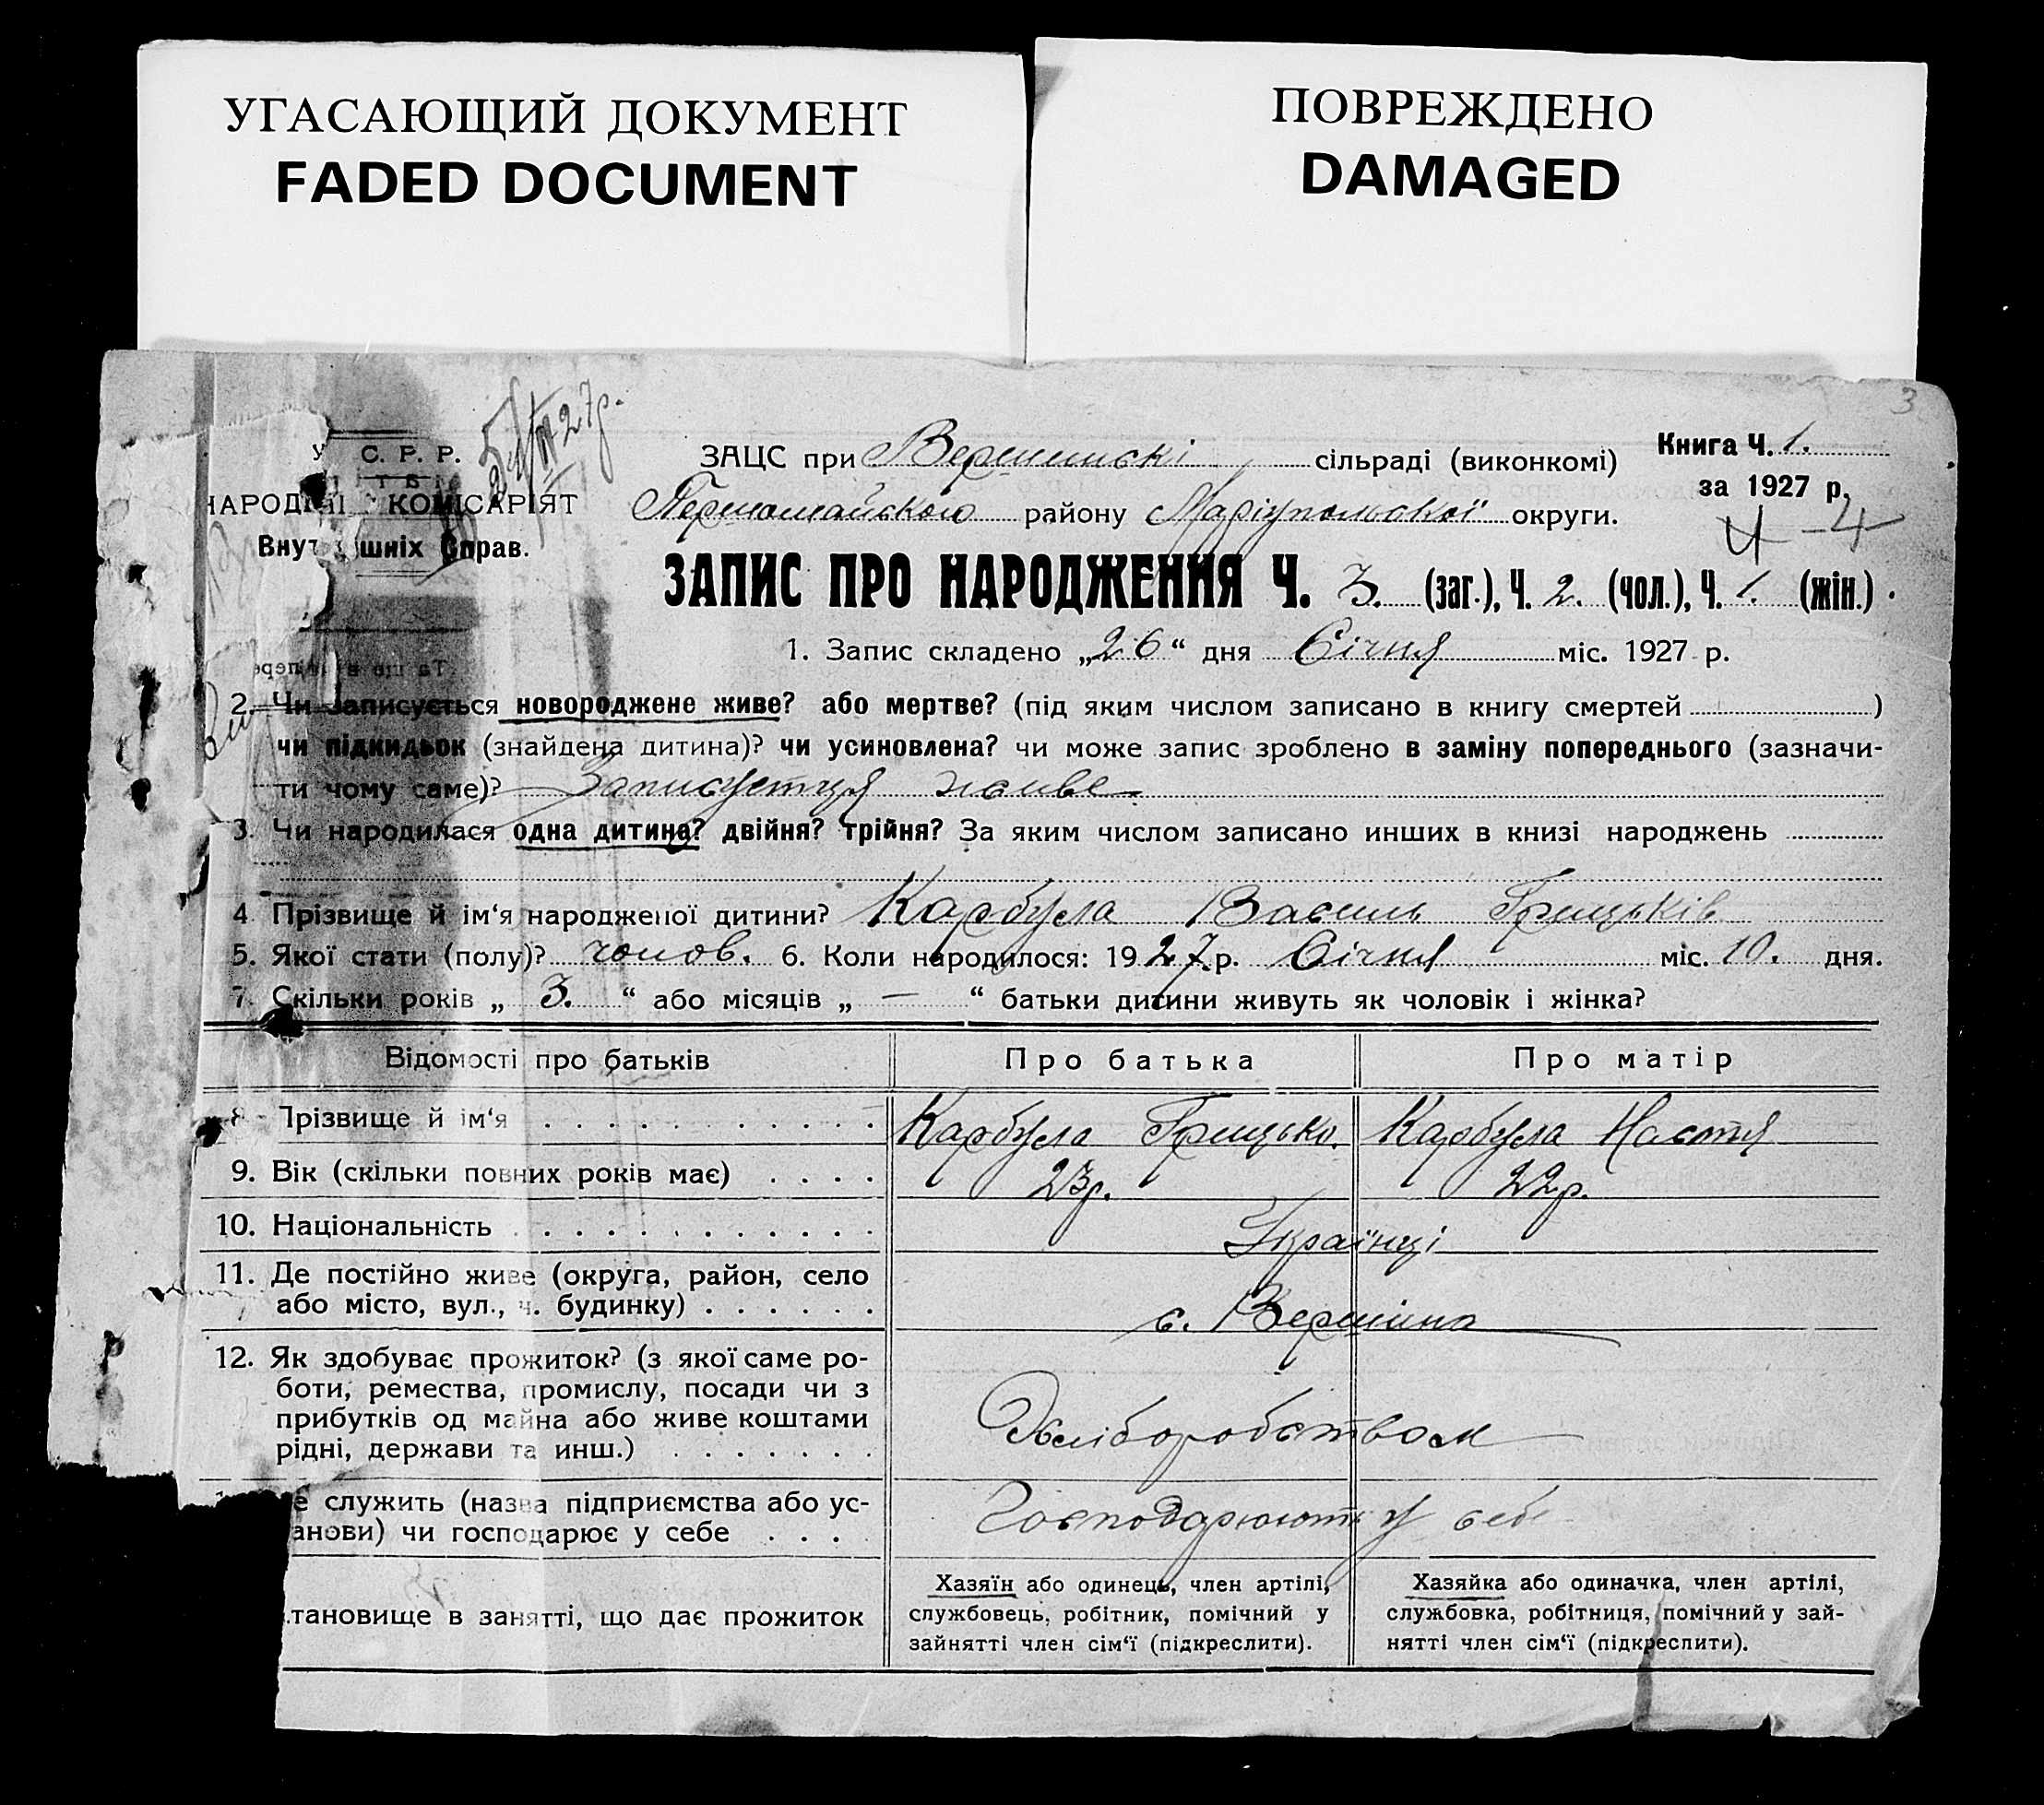 УГАСАЮЩИЙ ДОКУМЕНТ
FADED DOCUMENT
ПОВРЕЖДЕНО
DAMAGED
3
У. С. Р. Р.
НАРОДНІЙ КОМІСАРІЯТ
Внутрішніх Справ.
ЗАЦС при сільраді (виконкомі)
Книга Ч. 1.
за 1927 р.
Першомайського району Маріупольської округи.
4
ЗАПИС ПРО НАРОДЖЕННЯ Ч. 3. (заг.), Ч. 2. (чол.), Ч. 1. (жін.)
1. Запис складено „26“ дня Січня міс. 1927 р.
2. Чи записується новороджене живе? або мертве? (під яким числом записано в книгу смертей )
чи підкидьок (знайдена дитина)? чи усиновлена? чи може запис зроблено в заміну попереднього (зазначи-
ти чому саме)? Записуетця живе
3. Чи народилася одна дитина? двійня? трійня? За яким числом записано инших в книзі народжень
4 Прізвище й ім‘я народженої дитини? Карбула Василь Грицьків
5. Якої стати (полу)? чолов. 6. Коли народилося: 1927 р. Січня міс. 10. дня.
7. Скільки років „ 3. “ або місяців „ — “ батьки дитини живуть як чоловік і жінка?
Відомості про батьків
Про батька
Про матір
8 Прізвище й ім‘я
Карбула Грицько.
Карбула Настя
9. Вік (скільки повних років має)
23р.
22р.
10. Національність
Українці
11. Де постійно живе (округа, район, село
або місто, вул., ч. будинку)
с. Вершина
12. Як здобуває прожиток? (з якої саме ро-
боти, ремества, промислу, посади чи з
прибутків од майна або живе коштами
рідні, держави та инш.)
Хліборобством
е служить (назва підприємства або ус-
анови) чи господарює у себе
Господарюють у себе
тановище в занятті, що дає прожиток
Хазяїн або одинець, член артілі,
службовець, робітник, помічний у
зайнятті член сім‘ї (підкреслити).
Хазяйка або одиначка, член артілі,
службовка, робітниця, помічний у зай-
нятті член сім‘ї (підкреслити).